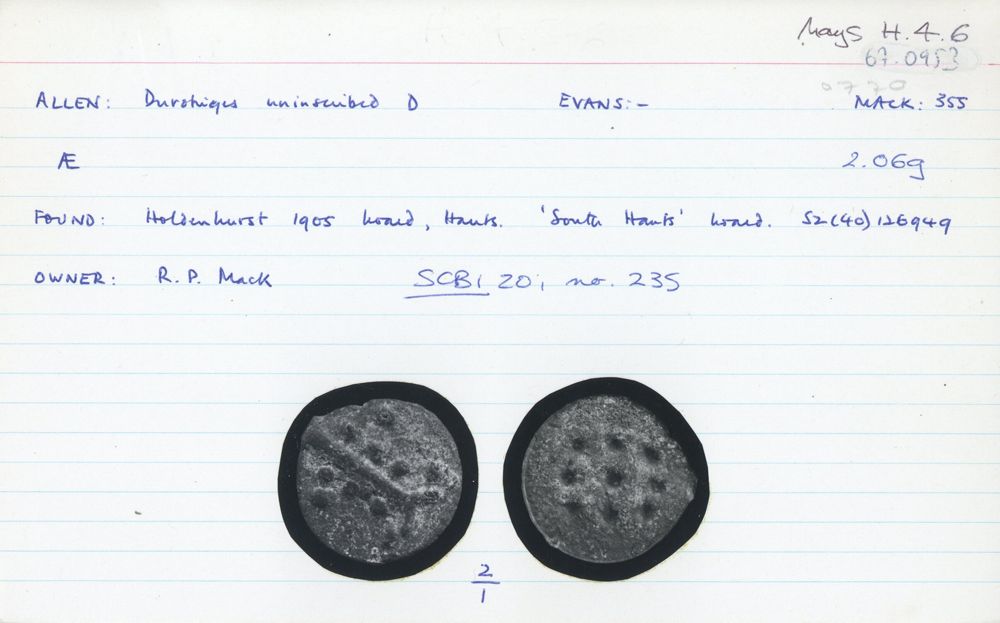 Mays H.4.6
67.0953
0770
ALLEN: Durotriges uninscribed D EVANS:- MACK: 355
Æ 2.06g
FOUND: Holdenhurst 1905 hoard, Hants. 'South Hants' hoard. SZ(40)126949
OWNER: R.P. Mack SCBI 20; no. 235
2
1